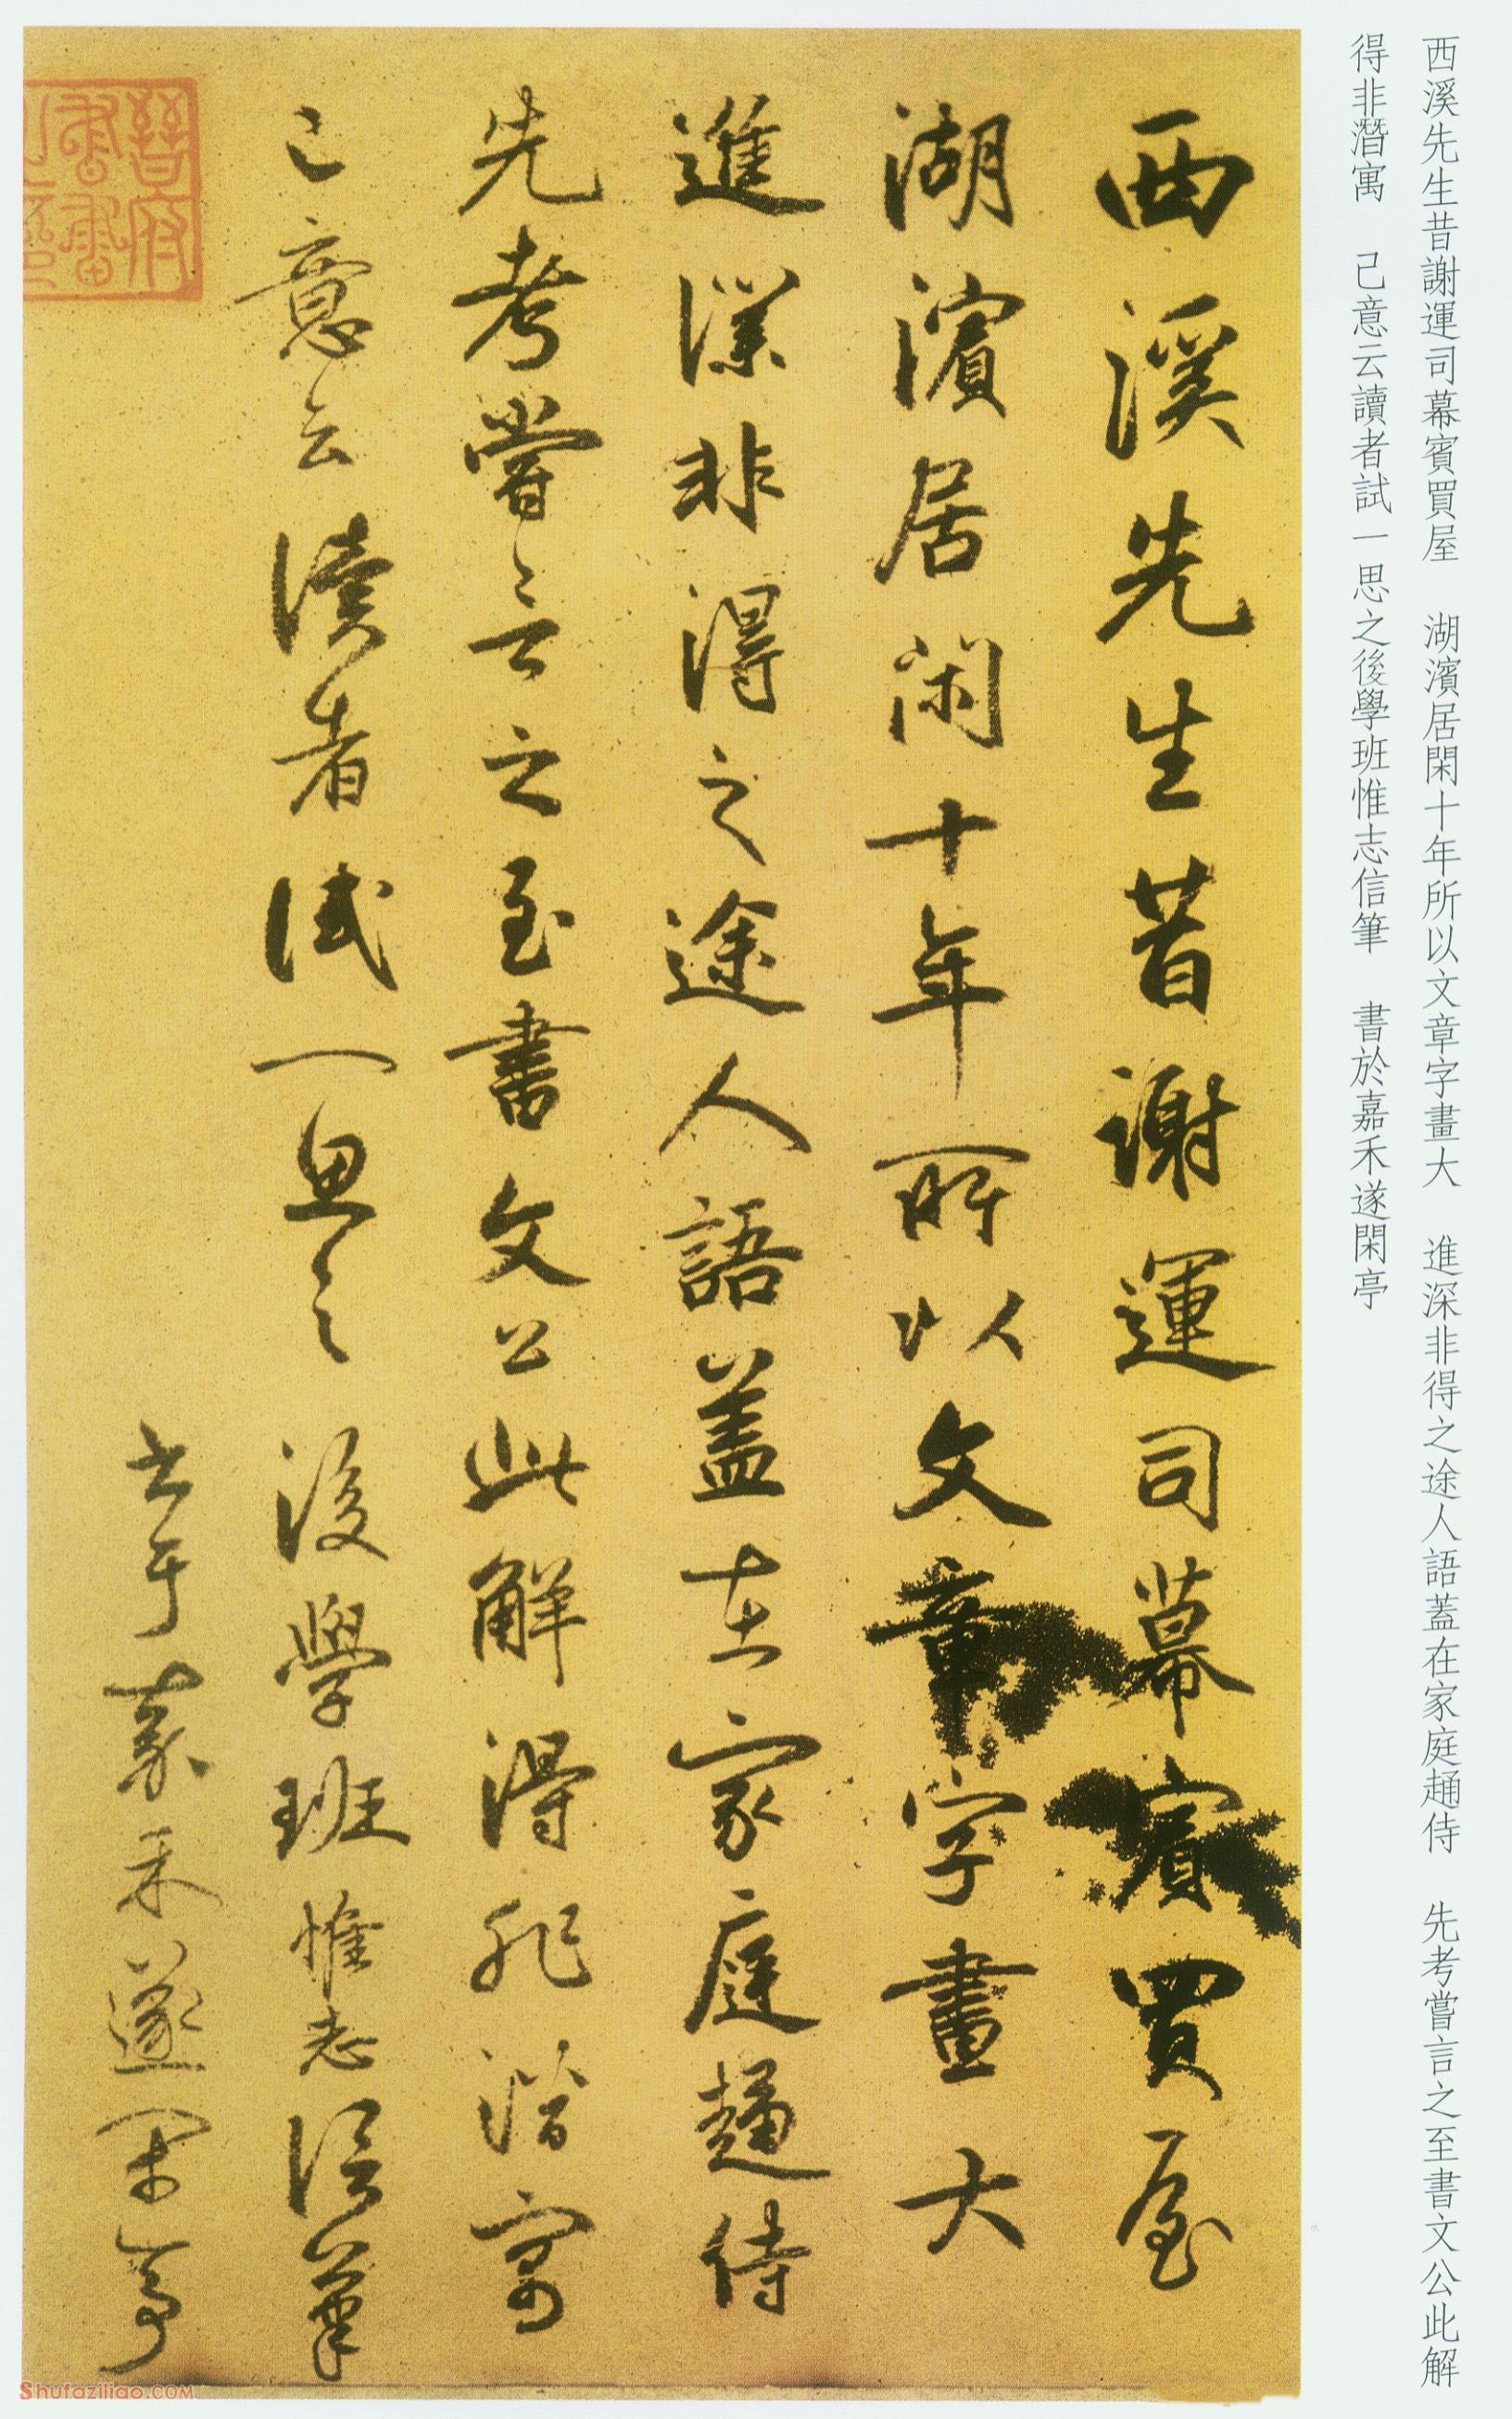 西溪先生昔謝運司幕賓買屋　湖濱居閑十年所以文章字畫大　進深非得之途人語蓋在家庭趨侍　先考嘗言之至書文公此解
得非潛寓　己意云讀者試一思之後學班惟志信筆　書於嘉禾遂閑亭
西溪先生昔謝運司幕賓買屋
湖濱居閑十年所以文章字畫大
進深非得之途人語蓋在家庭趨侍
先考嘗言之至書文公此解得非潛寓
己意云讀者試一思之後學班惟志信筆
書于嘉禾遂閑亭
晉府
書畫
之印
shufaziliao.com